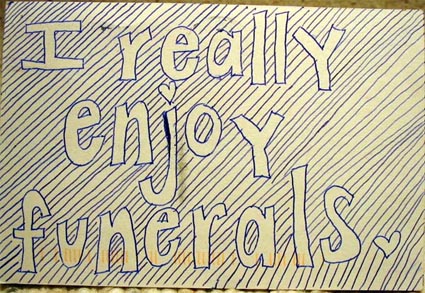 I really
enjoy
funerals.